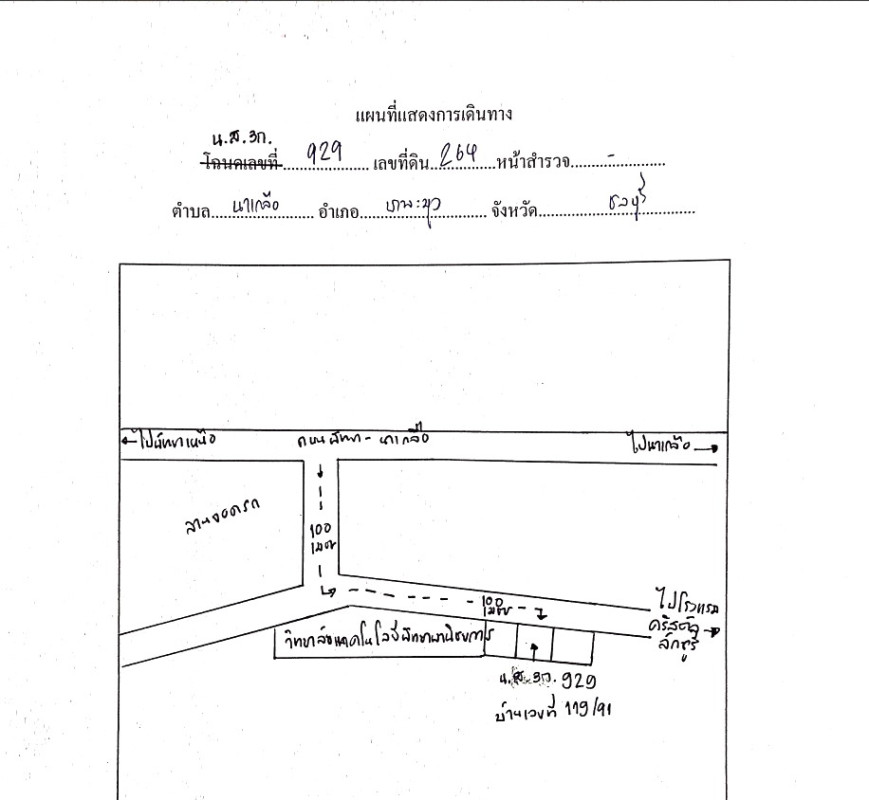 แผนที่แสดงการเดินทาง
น.ส.3ก.
โฉนดเลขที่ 929 เลขที่ดิน 264 หน้าสำรวจ -
ตำบล นาเกลือ อำเภอ บางละมุง จังหวัด ชลบุรี
← ไปพัทยาเหนือ ถนนพัทยา - นาเกลือ ไปนาเกลือ →
ลานจอดรถ
100
เมตร
100
เมตร
ไปโรงแรม
คริสตัล
ลักชูรี่
วิทยาลัยเทคโนโลยีพัทยาพาณิชยการ
น.ส.3ก. 929
บ้านเลขที่ 119/91